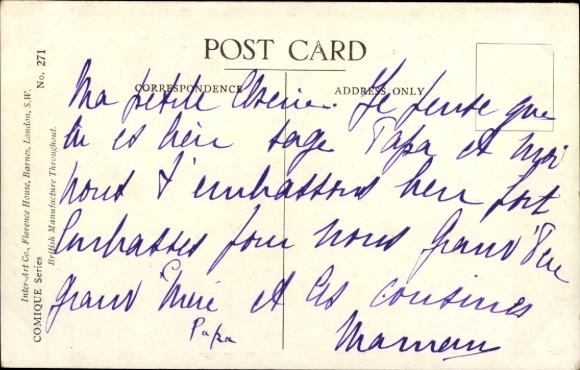 POST CARD
CORRESPONDENCE
ADDRESS ONLY
Ma petite Chérie. Je pense que
tu es bien sage Papa et moi
nous t'embrassons bien fort
Embrasses pour nous Grand Père
grand Mère et tes cousines
Papa Maman
Inter-Art Co., Florence House, Barnes, London, S.W.
British Manufacture Throughout.
COMIQUE Series No. 271